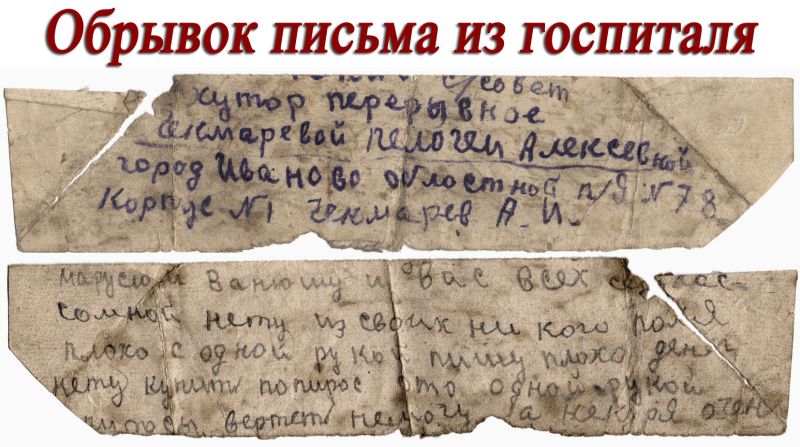 Обрывок письма из госпиталя
с/совет
хутор перерывное
Чекмаревой Пелогеи Алексевной
город Иваново областной п/я N 78
Корпус N1 Чекмарев А. И.
марусю и Ванюшу и вас всех
сомной нету из своих ни кого Поля
плохо с одной рукой пишу плохо денег
нету купить попирос ато одной рукой
вертеть немогу а некуря очен